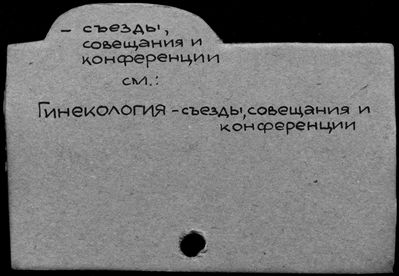 – съезды,
совещания и
конференции
см.:
Гинекология – съезды, совещания и
конференции